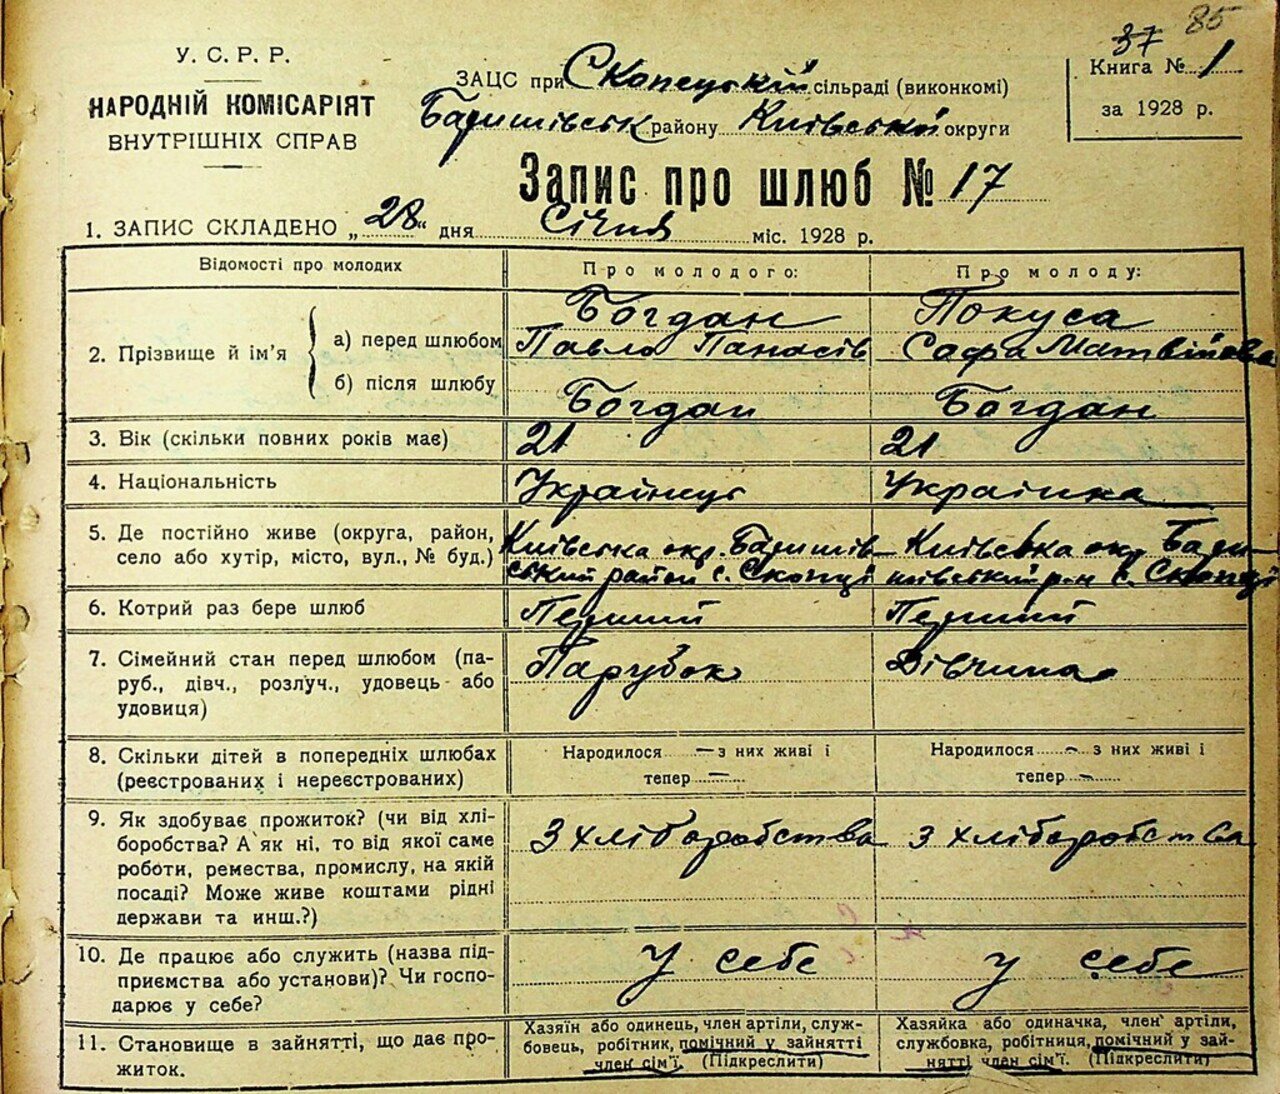 37 85
У. С. Р. Р.
НАРОДНІЙ КОМІСАРІЯТ
ВНУТРІШНІХ СПРАВ
ЗАЦС при Скопецькій сільраді (виконкомі)
Баришівськ району Київської округи
Книга № 1
за 1928 р.
Запис про шлюб № 17
1. ЗАПИС СКЛАДЕНО „28“ дня Січня міс. 1928 р.
Відомості про молодих
Про молодого:
Про молоду:
2. Прізвище й ім’я
а) перед шлюбом
Богдан
Павло Панасів
Покуса
Софа Матвійова
б) після шлюбу
Богдан
Богдан
3. Вік (скільки повних років має)
21
21
4. Національність
Українець
Українка
5. Де постійно живе (округа, район,
село або хутір, місто, вул., № буд.)
Київська окр. Баришів-
ський район с. Скопці
Київська окр Бари-
шівський р-н с. Скопці
6. Котрий раз бере шлюб
Перший
Перший
7. Сімейний стан перед шлюбом (па-
руб., дівч., розлуч., удовець або
удовиця)
Парубок
Дівчина
8. Скільки дітей в попередніх шлюбах
(реєстрованих і нереєстрованих)
Народилося — з них живі і
тепер —
Народилося — з них живі і
тепер —
9. Як здобуває прожиток? (чи від хлі-
боробства? А як ні, то від якої саме
роботи, ремества, промислу, на якій
посаді? Може живе коштами рідні
держави та инш.?)
З хліборобства
З хліборобства
10. Де працює або служить (назва під-
приємства або установи)? Чи госпо-
дарює у себе?
У себе
У себе
11. Становище в зайнятті, що дає про-
житок.
Хазяїн або одинець, член артіли, служ-
бовець, робітник, помічний у зайнятті
член сім’ї. (Підкреслити)
Хазяйка або одиначка, член артіли,
службовка, робітниця, помічний у зай-
нятті член сім’ї. (Підкреслити)